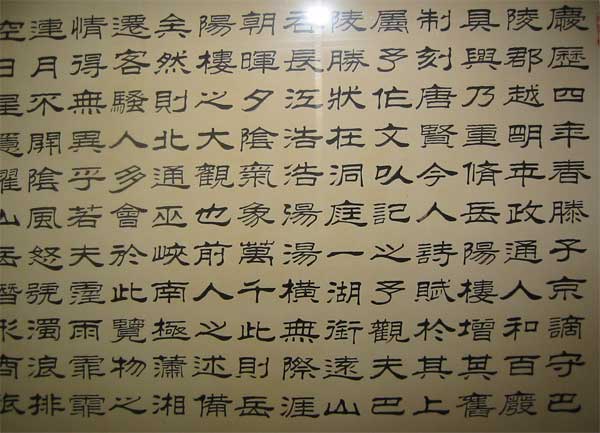 慶歷四年春滕子京謫守巴
陵郡越明年政通人和百廢
具興乃重脩岳陽樓增其舊
制刻唐賢今人詩賦於其上
屬予作文以記之予觀夫巴
陵勝狀在洞庭一湖銜遠山
吞長江浩浩湯湯橫無際涯
朝暉夕陰氣象萬千此則岳
陽樓之大觀也前人之述備
矣然則北通巫峽南極瀟湘
遷客騷人多會於此覽物之
情得無異乎若夫霪雨霏霏
連月不開陰風怒號濁浪排
空日星隱耀山岳潛形商旅